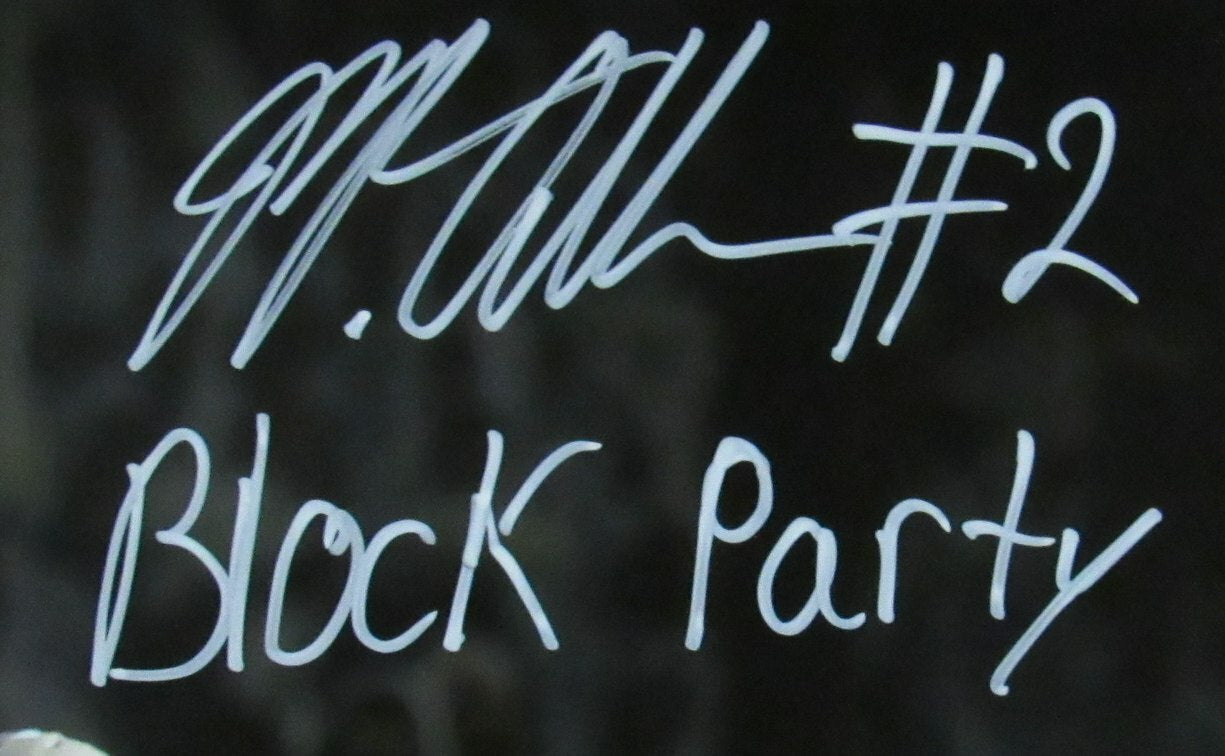 M. #2
Block Party